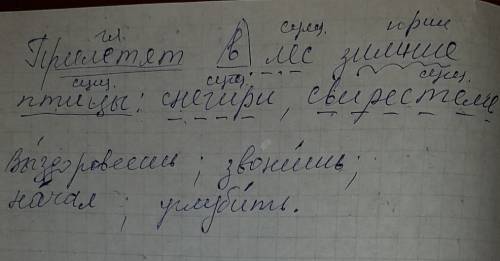 гл. сущ. прил
Прилетят в лес зимние
сущ. сущ. сущ.
птицы: снегири, свиристели
Вы́здоровеешь; звони́шь;
на́чал; углуби́ть.